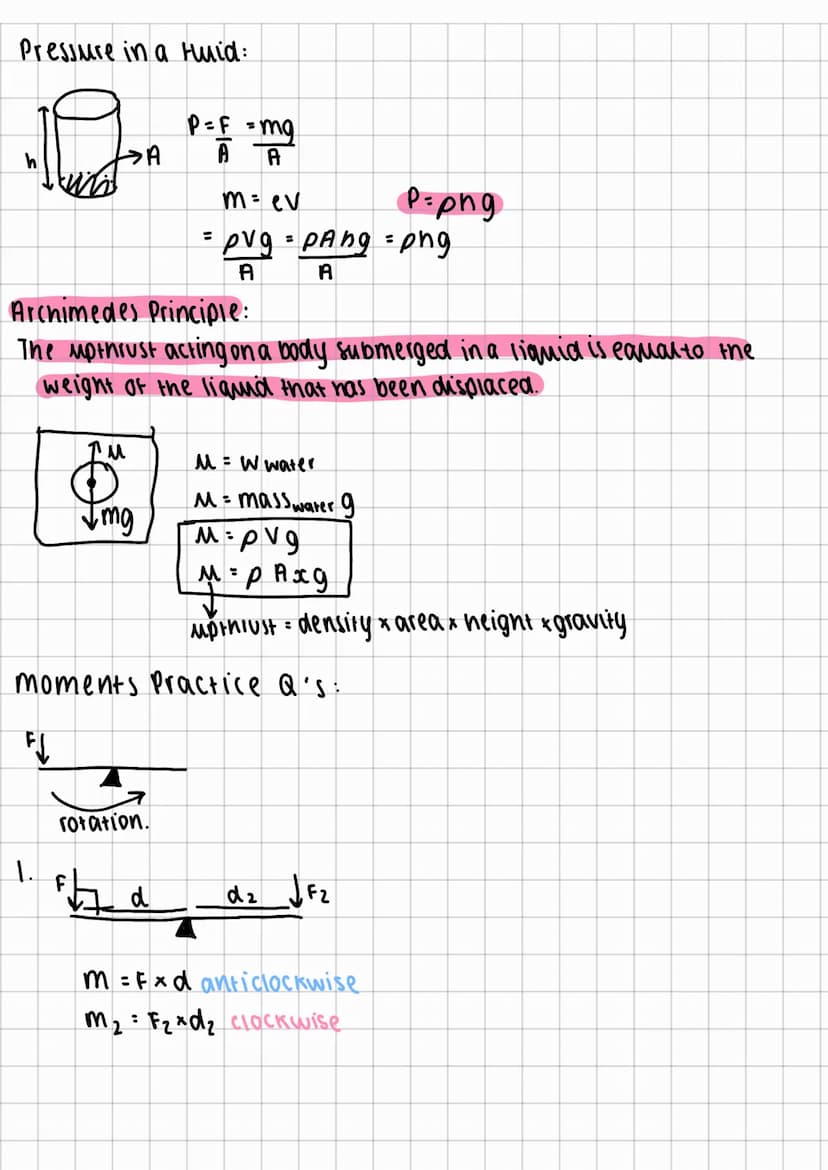 Pressure in a Fluid:
h
A
P = F/A = mg/A
m = ρv
P = ρhg
= ρVg/A = ρAhg/A = ρhg
Archimedes Principle:
The upthrust acting on a body submerged in a liquid is equal to the
weight of the liquid that has been displaced.
u
mg
u = W water
u = mass water g
u = ρVg
u = ρAxg
upthrust = density x area x height x gravity
Moments Practice Q's:
F
rotation.
1.
F d d2 F2
m = F x d anticlockwise
m2 = F2 x d2 clockwise